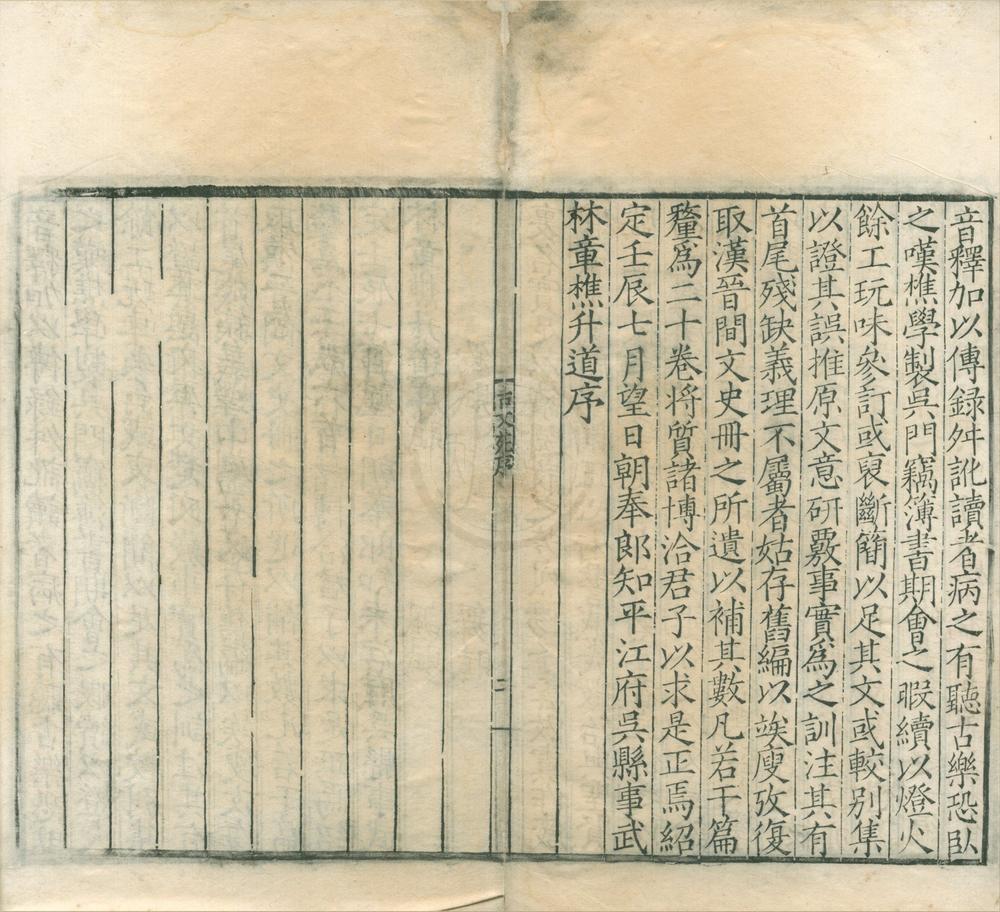 音釋加以傳録舛訛讀者病之有聽古樂恐臥
之嘆樵學製吳門竊簿書期會之暇續以燈火
餘工玩味參訂或裒斷簡以足其文或較别集
以證其誤推原文意研覈事實爲之訓注其有
首尾殘缺義理不屬者姑存舊編以竢廋攷復
取漢晉間文史冊之所遺以補其數凡若干篇
釐爲二十卷将質諸博洽君子以求是正焉紹
定壬辰七月望日朝奉郎知平江府吳縣事武
林章樵升道序
二